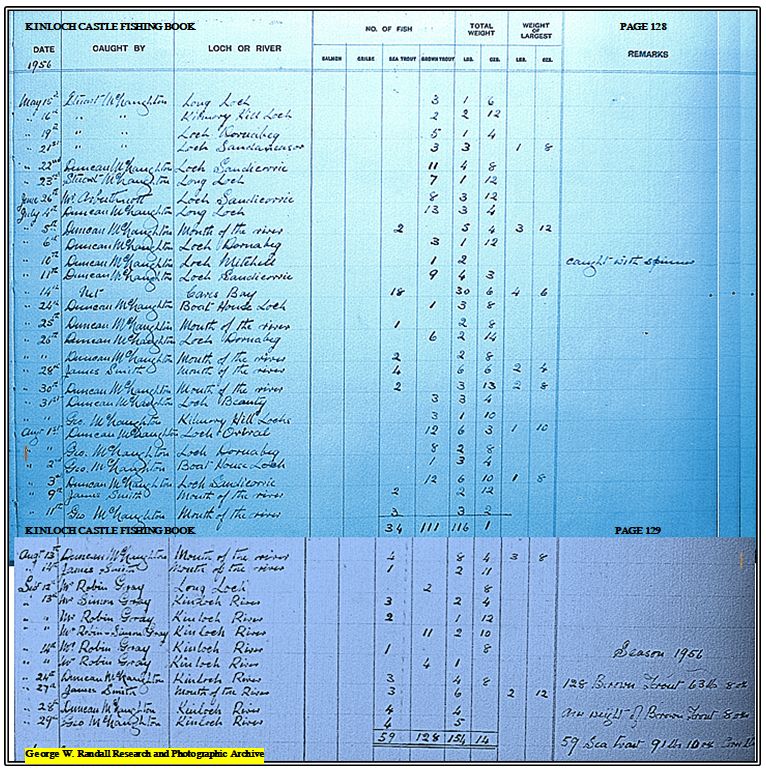 KINLOCH CASTLE FISHING BOOK PAGE 128
DATE CAUGHT BY LOCH OR RIVER NO. OF FISH TOTAL WEIGHT WEIGHT OF LARGEST REMARKS
SALMON GRILSE SEA TROUT BROWN TROUT LBS. OZS. LBS. OZS.
1956
May 15th Stuart McNaughton Long Loch 3 1 6
" 16th " " Kilmory Hill Loch 2 2 12
" 19th " " Loch Dornabeg 5 1 4
" 21st " " Loch 3 3 1 8
" 22nd Duncan McNaughton Loch Sandiorrie 11 4 8
" 23rd Stuart McNaughton Long Loch 7 1 12
June 26th Mr Arbuthnott Loch Sandiorrie 8 3 12
July 4th Duncan McNaughton Long Loch 13 3 4
" 5th Duncan McNaughton Mouth of the river 2 5 4 3 12
" 6th Duncan McNaughton Loch Dornabeg 3 1 12
" 10th Duncan McNaughton Loch Mitchell 1 2 caught with spinner
" 11th Duncan McNaughton Loch Sandiorrie 9 4 3
" 14th Net Caves Bay 18 30 6 4 6
" 24th Duncan McNaughton Boat House Loch 1 3 8
" 25th Duncan McNaughton Mouth of the river 1 2 8
" 26th Duncan McNaughton Loch Dornabeg 6 2 14
" " Duncan McNaughton Mouth of the river 2 2 8
" 28th James Smith Mouth of the river 4 6 6 2 4
" 30th Duncan McNaughton Mouth of the river 2 3 13 2 8
" 31st Duncan McNaughton Loch Beauty 3 3 4
" " Geo. McNaughton Kilmory Hill Lochs 3 1 10
Aug 1st Duncan McNaughton Loch 12 6 3 1 10
" " Geo. McNaughton Loch Dornabeg 8 2 8
" 2nd Geo. McNaughton Boat House Loch 1 3 4
" 3rd Duncan McNaughton Loch Sandiorrie 12 6 10 1 8
" 9th James Smith Mouth of the river 2 2 12
" 11th Geo McNaughton Mouth of the river 3 3 2
34 111 116 1
KINLOCH CASTLE FISHING BOOK PAGE 129
Augt 13th Duncan McNaughton Mouth of the river 4 8 4 3 8
" 14th James Smith Mouth of the river 1 2 11
Sept 12th Mr Robin Gray Long Loch 2 8
" 13th Mr Simon Gray Kinloch River 3 2 4
" " Mr Robin Gray Kinloch River 2 1 12
" " Mr Robin - Simon Gray Kinloch River 11 2 10
" 14th Mr Robin Gray Kinloch River 1 8
" " Mr Robin Gray Kinloch River 4 1
" 24th Duncan McNaughton Kinloch River 3 4 8
" 27th James Smith Mouth of the River 3 6 2 12
" 28th Duncan McNaughton Kinloch River 4 4
" 29th Geo McNaughton Kinloch River 4 5
59 128 154 14
Season 1956
128 Brown Trout 63 lb 8 ozs
Av weight of Brown Trout 8 ozs
59 Sea Trout 91 lbs 10 oz
George W. Randall Research and Photographic Archive